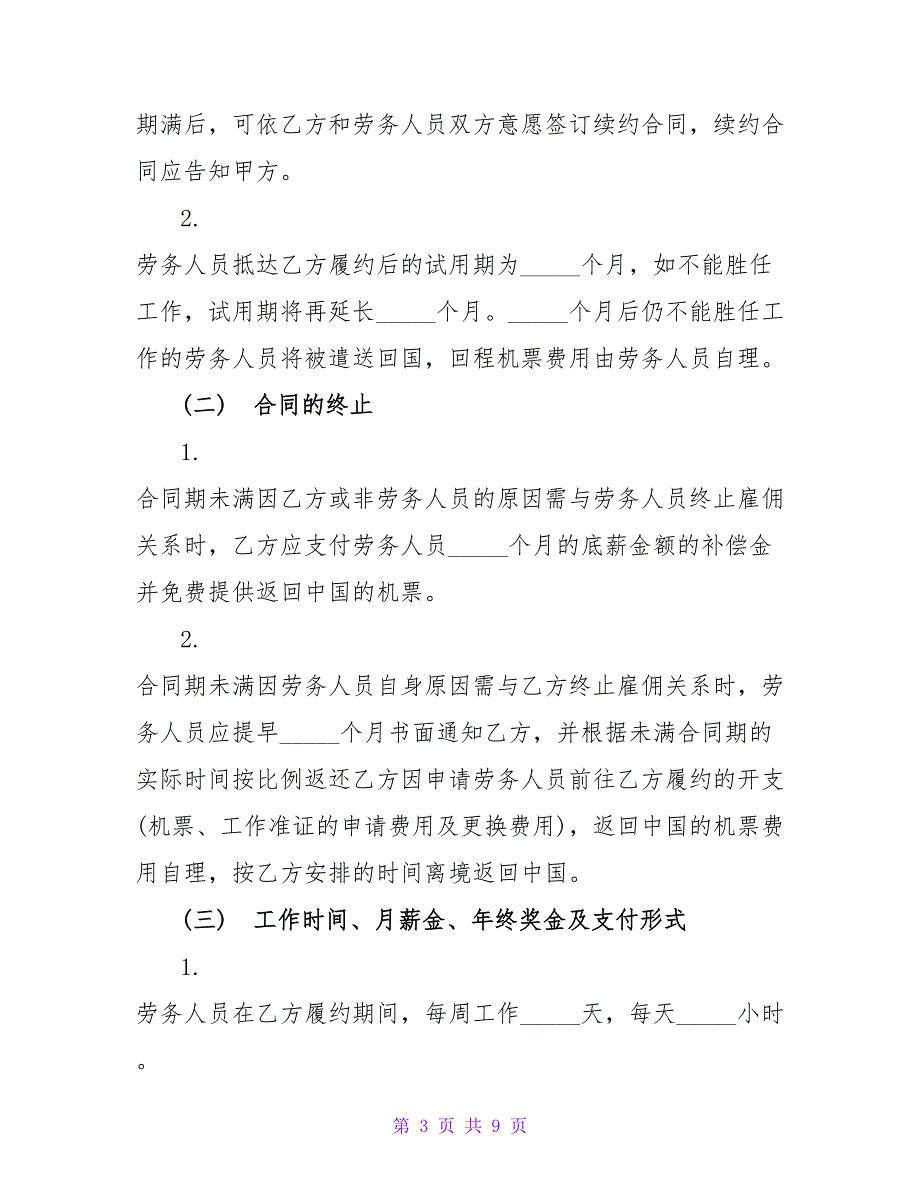 期满后，可依乙方和劳务人员双方意愿签订续约合同，续约合
同应告知甲方。
2.
劳务人员抵达乙方履约后的试用期为_____个月，如不能胜任
工作，试用期将再延长_____个月。_____个月后仍不能胜任工
作的劳务人员将被遣送回国，回程机票费用由劳务人员自理。
(二) 合同的终止
1.
合同期未满因乙方或非劳务人员的原因需与劳务人员终止雇佣
关系时，乙方应支付劳务人员_____个月的底薪金额的补偿金
并免费提供返回中国的机票。
2.
合同期未满因劳务人员自身原因需与乙方终止雇佣关系时，劳
务人员应提早_____个月书面通知乙方，并根据未满合同期的
实际时间按比例返还乙方因申请劳务人员前往乙方履约的开支
(机票、工作准证的申请费用及更换费用)，返回中国的机票费
用自理，按乙方安排的时间离境返回中国。
(三) 工作时间、月薪金、年终奖金及支付形式
1.
劳务人员在乙方履约期间，每周工作_____天，每天_____小时
。
第 3 页 共 9 页